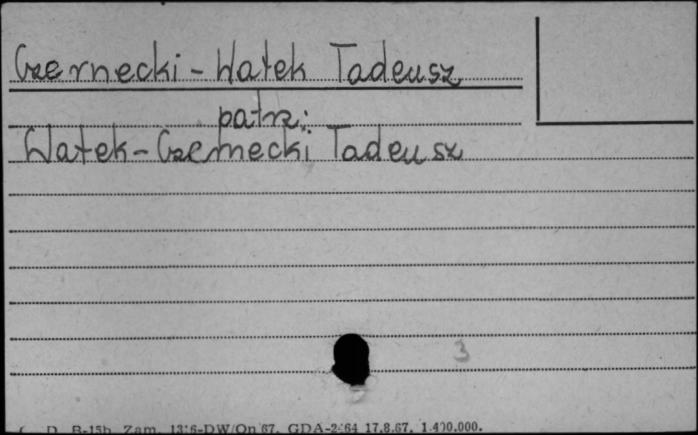 Czernecki - Wałek Tadeusz
patrz:
Wałek-Czernecki Tadeusz
3
D. B-15b. Zam. 1316-DW/On 67. GDA-2-64 17.8.67. 1.400.000.